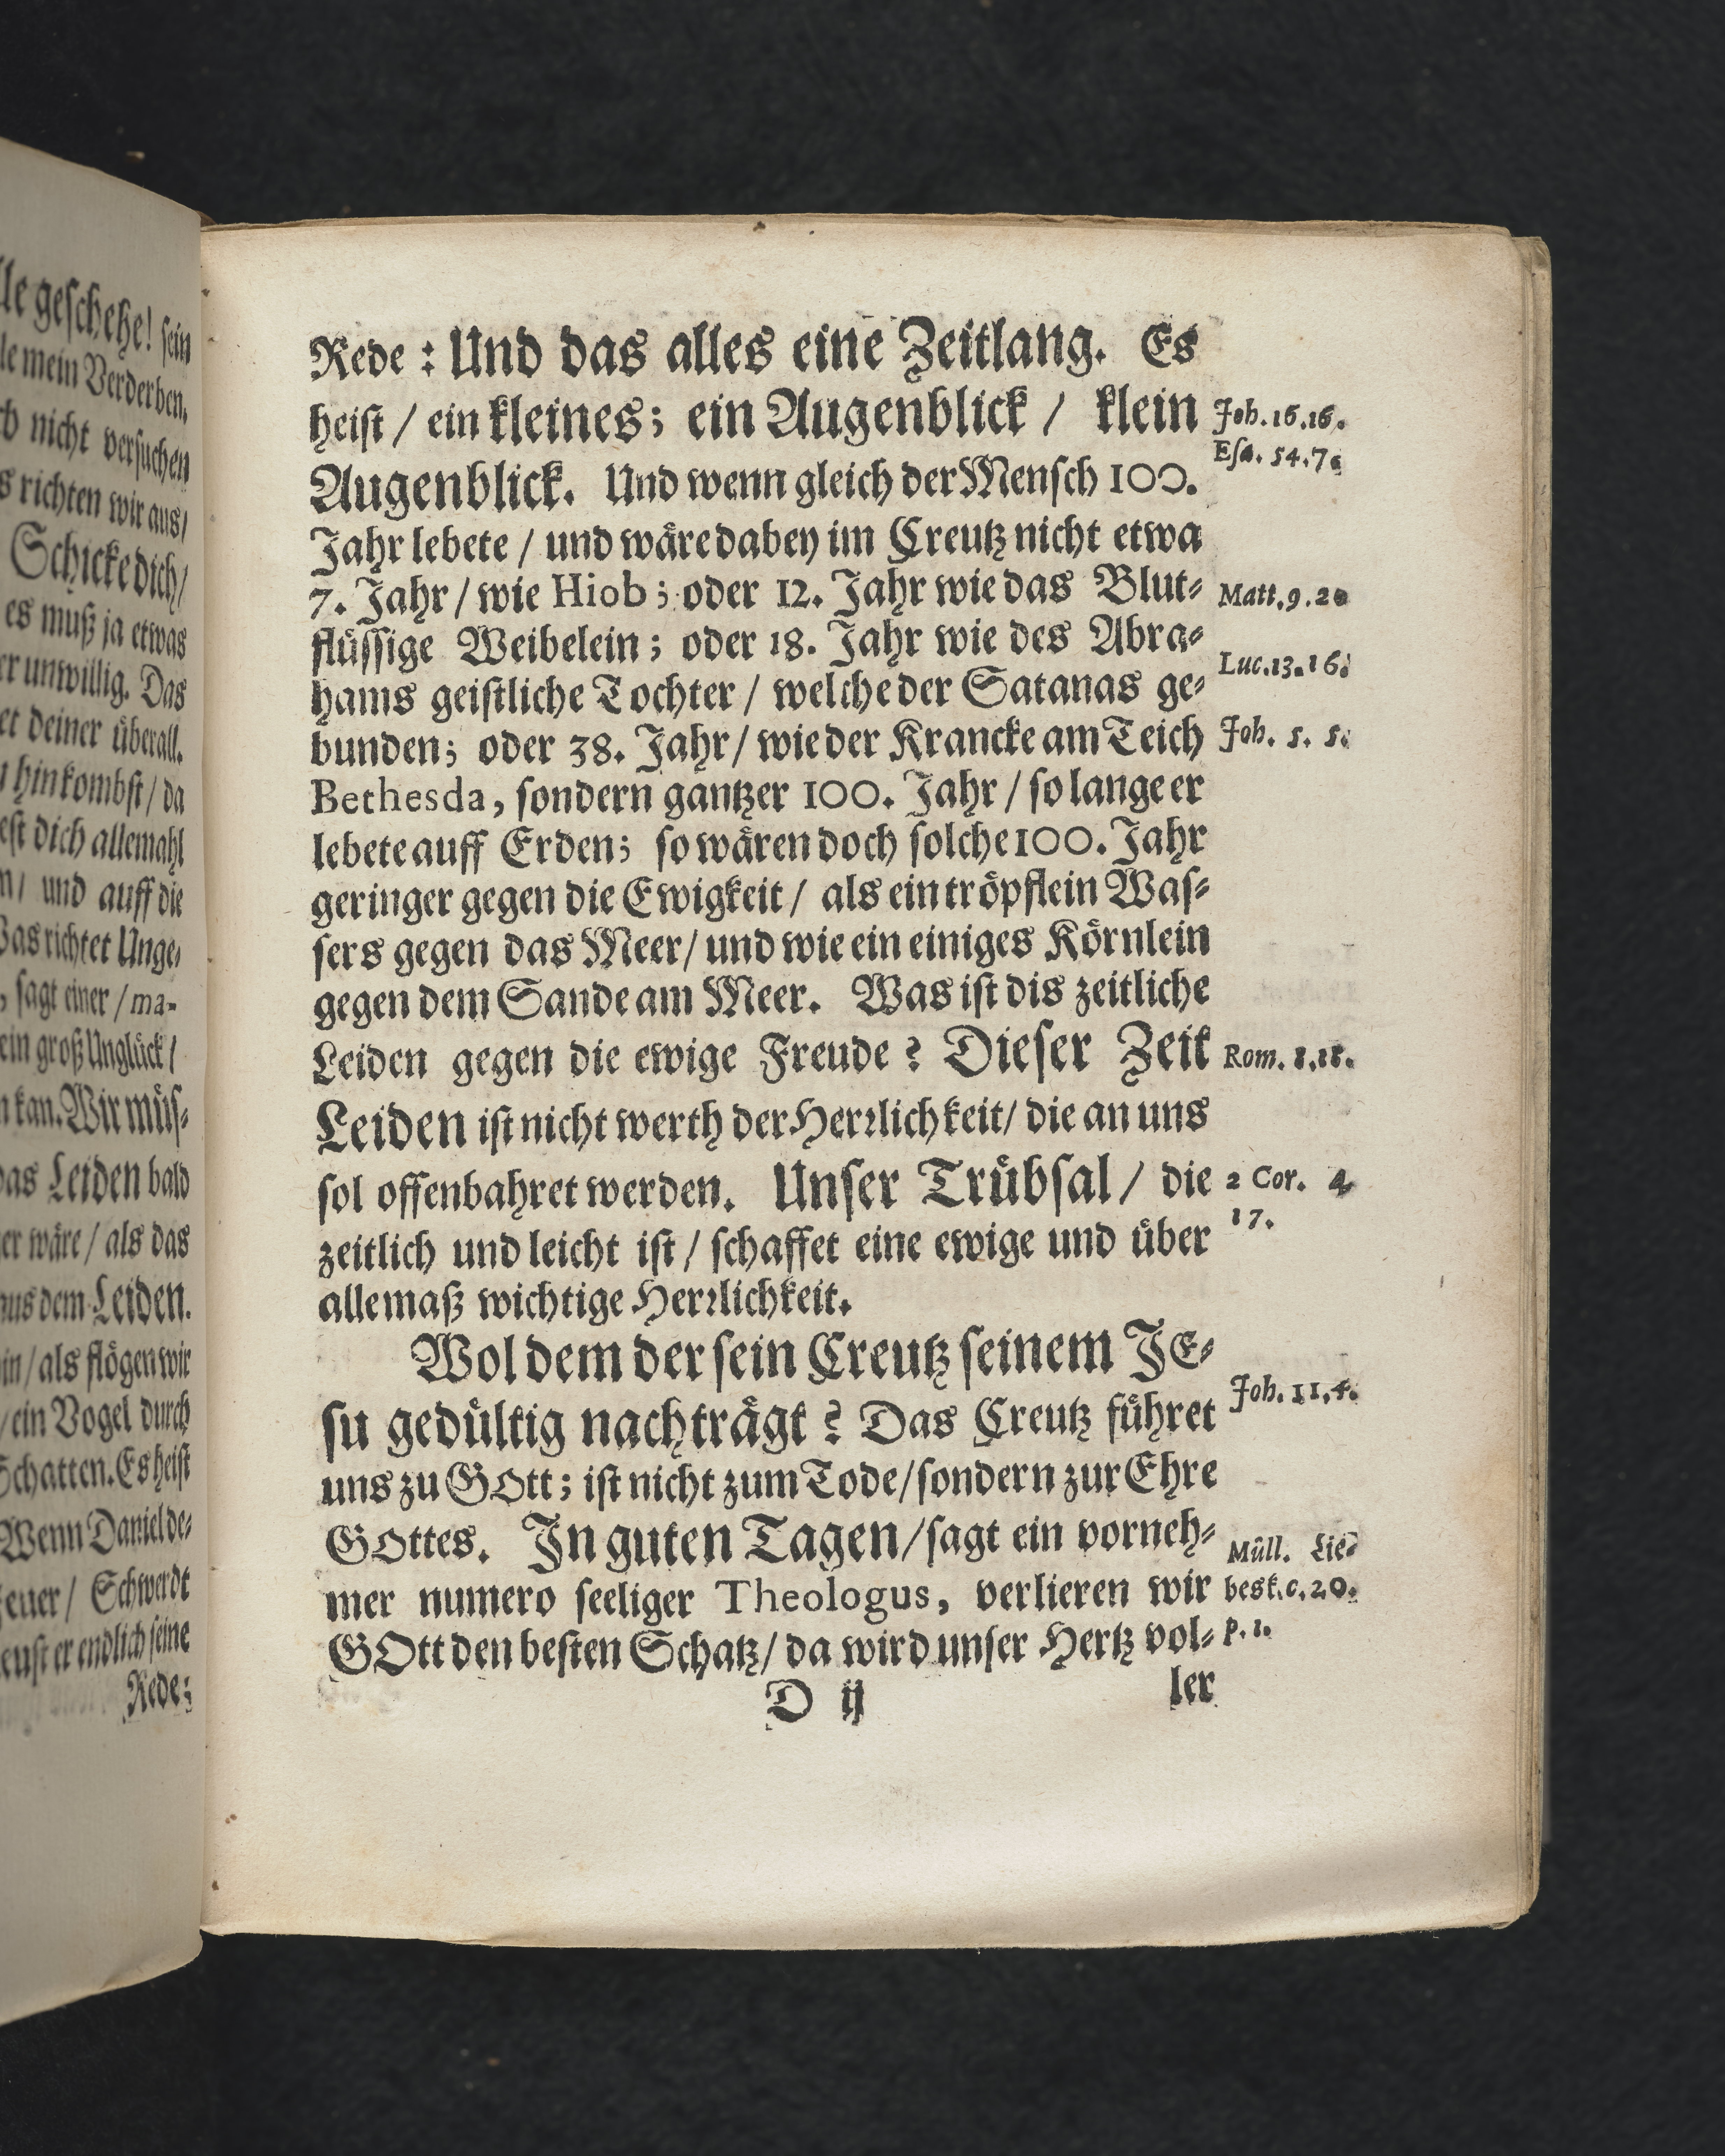 le geschehe! sein
le mein Verderben.
nicht versuchen
s richten wir aus/
Schicke dich/
es muß ja etwas
er unwillig. Das
et deiner überall.
hinkombst/ da
est dich allemahl
und auff die
Was richtet Unge-
sagt einer / ma-
ein groß Unglück/
kan. Wir müs-
das Leiden bald
er wäre / als das
aus dem Leiden.
in/ als flögen wir
/ ein Vogel durch
Schatten. Es heist
Wenn Daniel de-
euer/ Schwerdt
eust er endlich seine
Rede:
Rede: Und das alles eine Zeitlang. Es
heist / ein kleines; ein Augenblick / klein
Joh. 16.16.
Esa. 54.7.
Augenblick. Und wenn gleich der Mensch 100.
Jahr lebete / und wäre dabey im Creutz nicht etwa
7. Jahr / wie Hiob; oder 12. Jahr wie das Blut-
Matt. 9. 20
flüssige Weibelein; oder 18. Jahr wie des Abra-
Luc. 13. 16.
hams geistliche Tochter / welche der Satanas ge-
bunden; oder 38. Jahr/ wie der Krancke am Teich
Joh. 5. 5.
Bethesda, sondern gantzer 100. Jahr / so lange er
lebete auff Erden; so wären doch solche 100. Jahr
geringer gegen die Ewigkeit / als ein tröpflein Was-
sers gegen das Meer/ und wie ein einiges Körnlein
gegen dem Sande am Meer. Was ist dis zeitliche
Leiden gegen die ewige Freude? Dieser Zeit
Rom. 8.18.
Leiden ist nicht werth der Herrlichkeit/ die an uns
sol offenbahret werden. Unser Trübsal / die
2 Cor. 4
17.
zeitlich und leicht ist / schaffet eine ewige und über
alle maß wichtige Herrlichkeit.
Wol dem der sein Creutz seinem JE-
Joh. 11.4.
su gedültig nachträgt? Das Creutz führet
uns zu GOtt; ist nicht zum Tode/ sondern zur Ehre
GOttes. In guten Tagen/ sagt ein vorneh-
Müll. Lie-
mer numero seeliger Theologus, verlieren wir
besk. c. 20.
GOtt den besten Schatz/ da wird unser Hertz vol-
p. 1.
D ij
ler